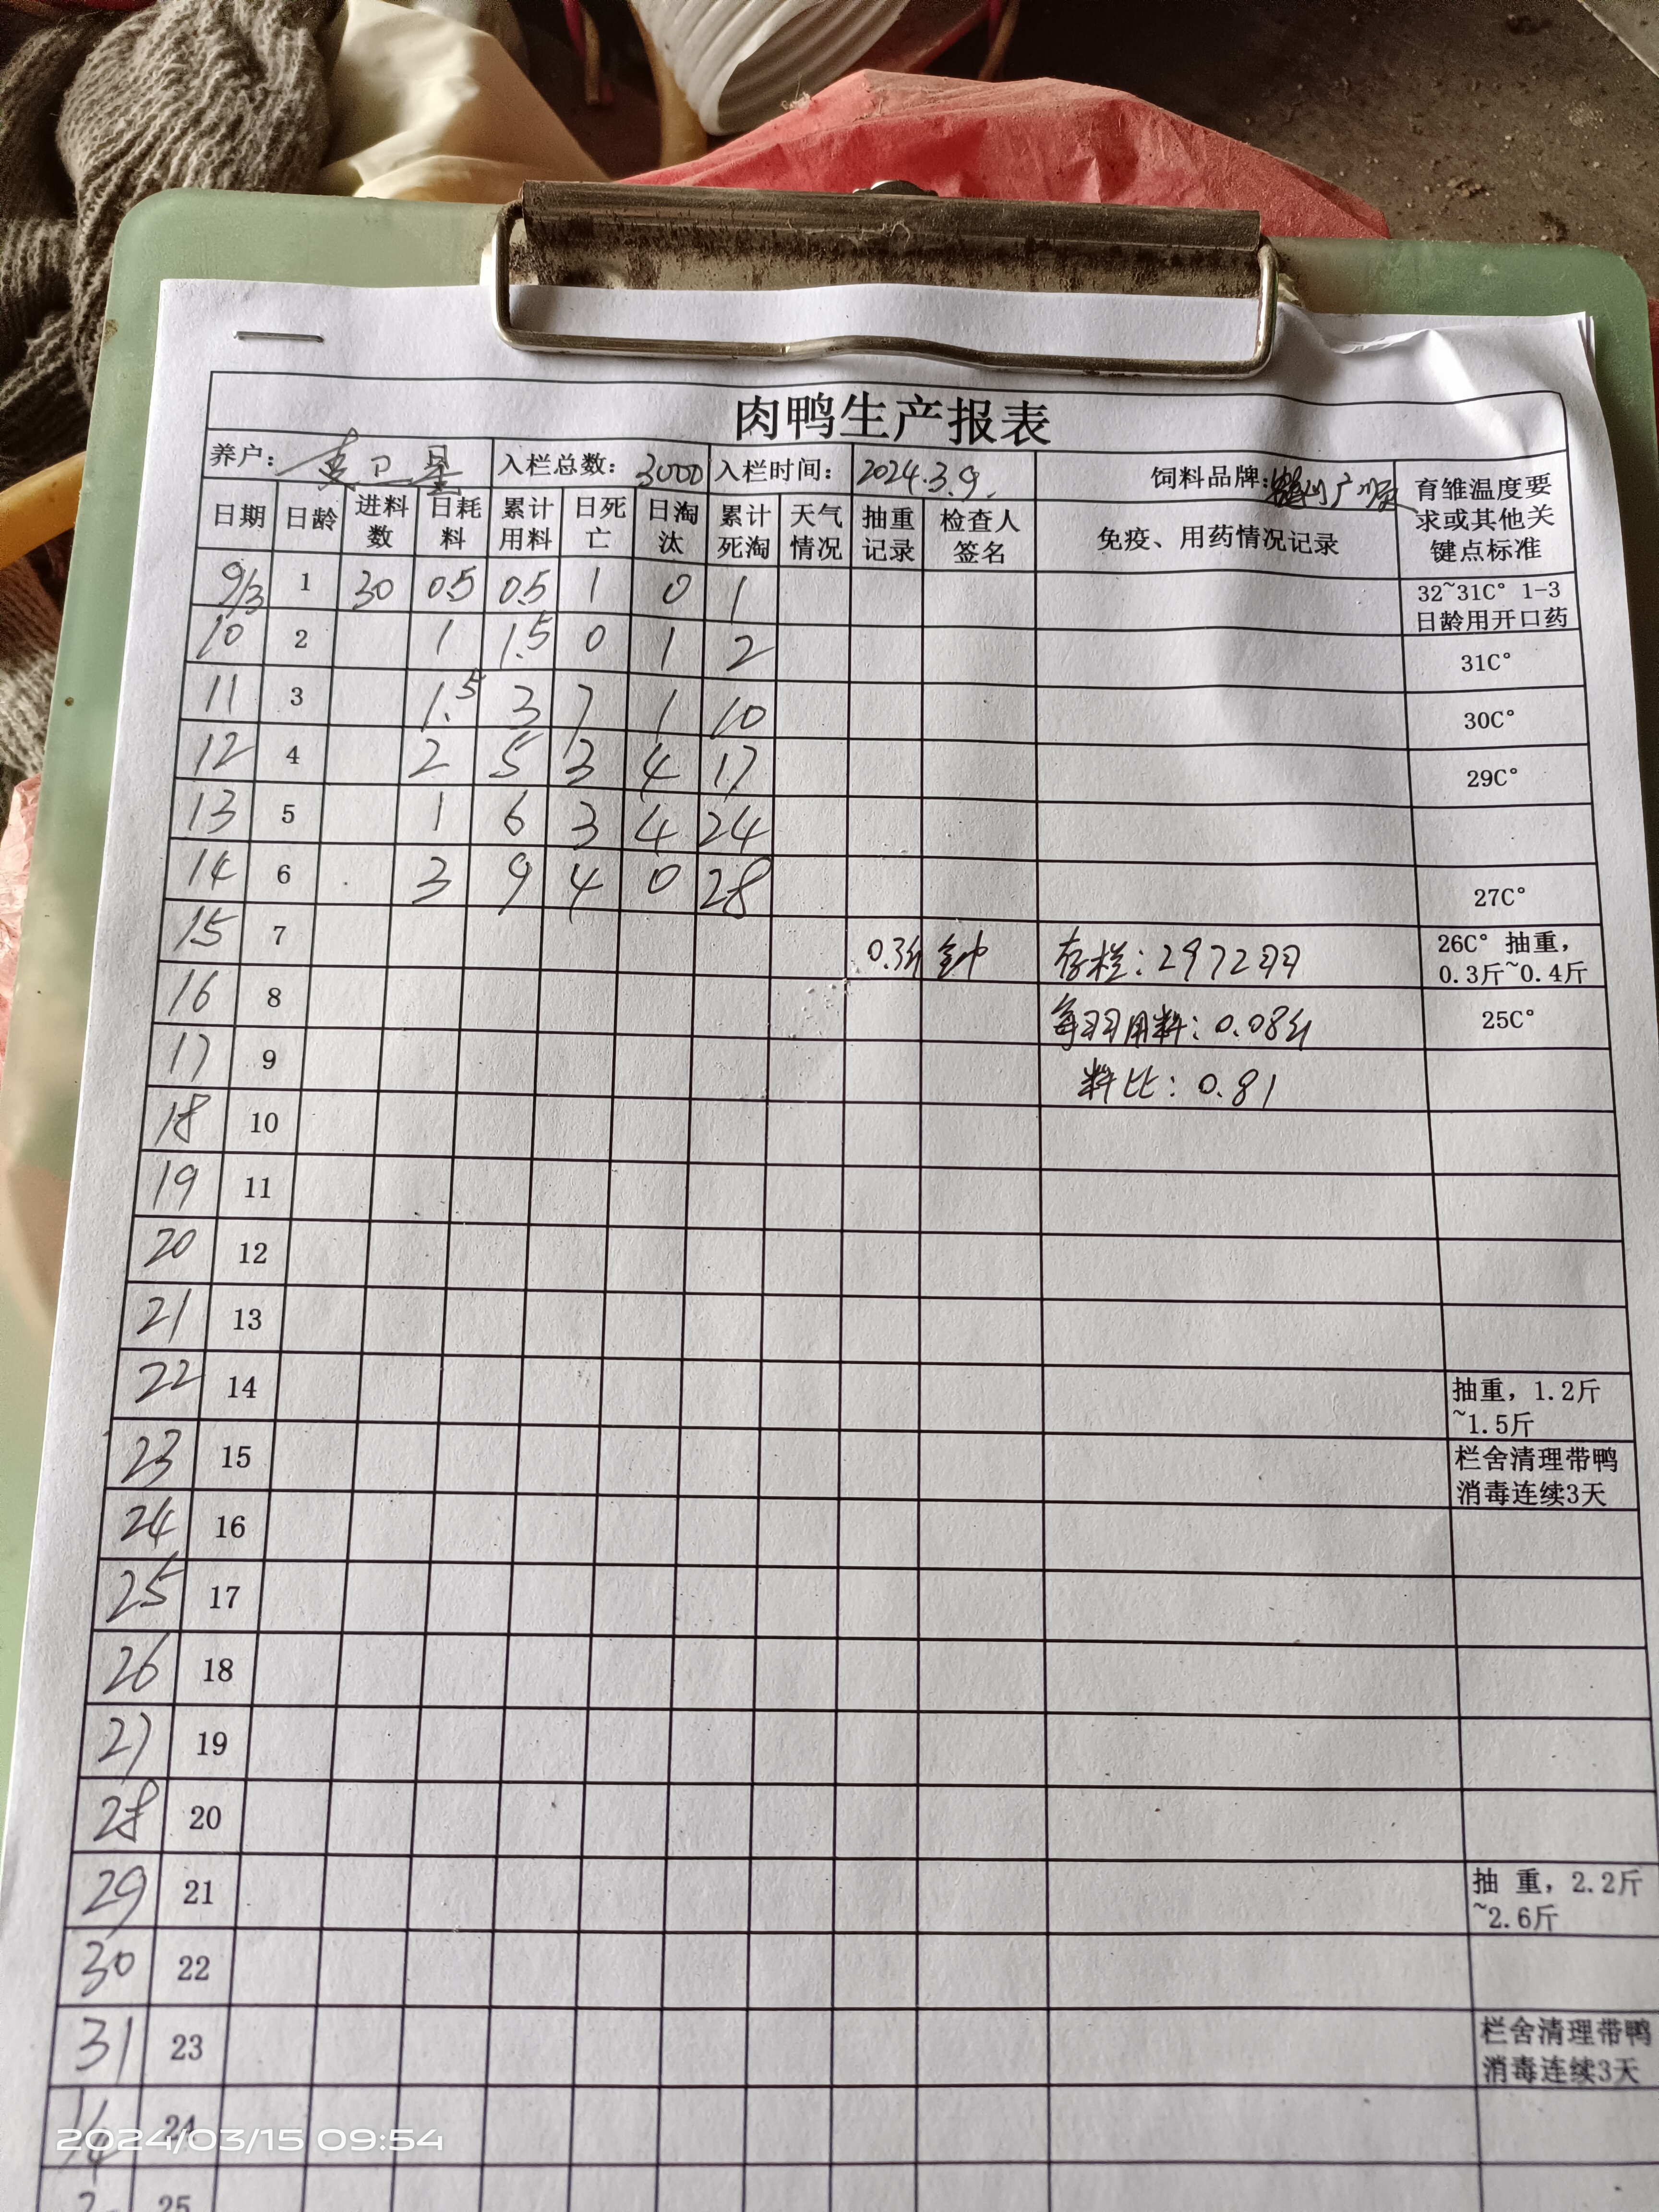 肉鸭生产报表
养户： 卫星 入栏总数：3000 入栏时间：2024.3.9. 饲料品牌： 育雏温度要求或其他关键点标准
日期 日龄 进料数 日耗料 累计用料 日死亡 日淘汰 累计死淘 天气情况 抽重记录 检查人签名 免疫、用药情况记录
9/3 1 30 0.5 0.5 1 0 1 32~31C° 1-3日龄用开口药
10 2 1 1.5 0 1 2 31C°
11 3 1.5 3 7 1 10 30C°
12 4 2 5 3 4 17 29C°
13 5 1 6 3 4 24
14 6 3 9 4 0 28 27C°
15 7 0.3斤 存栏：2972羽 26C° 抽重，0.3斤~0.4斤
16 8 每羽用料：0.08斤 25C°
17 9 料比：0.81
18 10
19 11
20 12
21 13
22 14 抽重，1.2斤~1.5斤
23 15 栏舍清理带鸭消毒连续3天
24 16
25 17
26 18
27 19
28 20
29 21 抽 重，2.2斤~2.6斤
30 22
31 23 栏舍清理带鸭消毒连续3天
1/4 24
2 25
2024/03/15 09:54